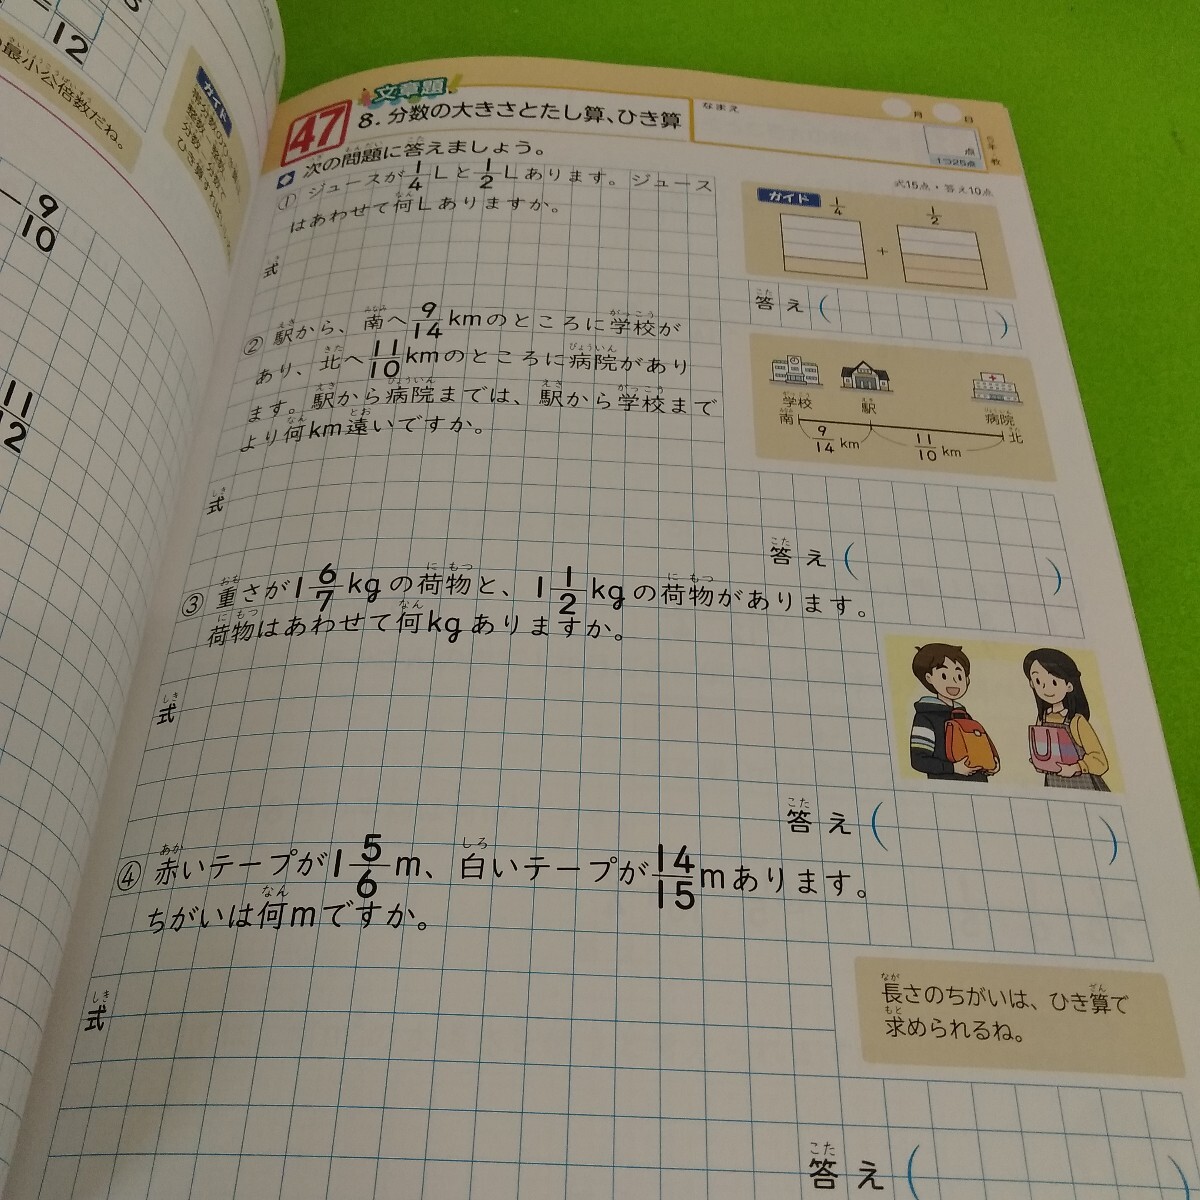 12
最小公倍数だね。
ガイド
9/10
11/12
文章題
47
8. 分数の大きさとたし算、ひき算
なまえ
月 日
点
1つ25点
式15点・答え10点
次の問題に答えましょう。
① ジュースが1/4Lと1/2Lあります。ジュース
はあわせて何Lありますか。
ガイド
1/4 + 1/2
式
答え( )
② 駅から、南へ9/14kmのところに学校が
あり、北へ11/10kmのところに病院があり
ます。駅から病院までは、駅から学校まで
より何km遠いですか。
学校 駅 病院
南 北
9/14 km 11/10 km
式
答え( )
③ 重さが1 6/7kgの荷物と、1 1/2kgの荷物があります。
荷物はあわせて何kgありますか。
式
答え( )
④ 赤いテープが1 5/6m、白いテープが14/15mあります。
ちがいは何mですか。
長さのちがいは、ひき算で
求められるね。
式
答え(